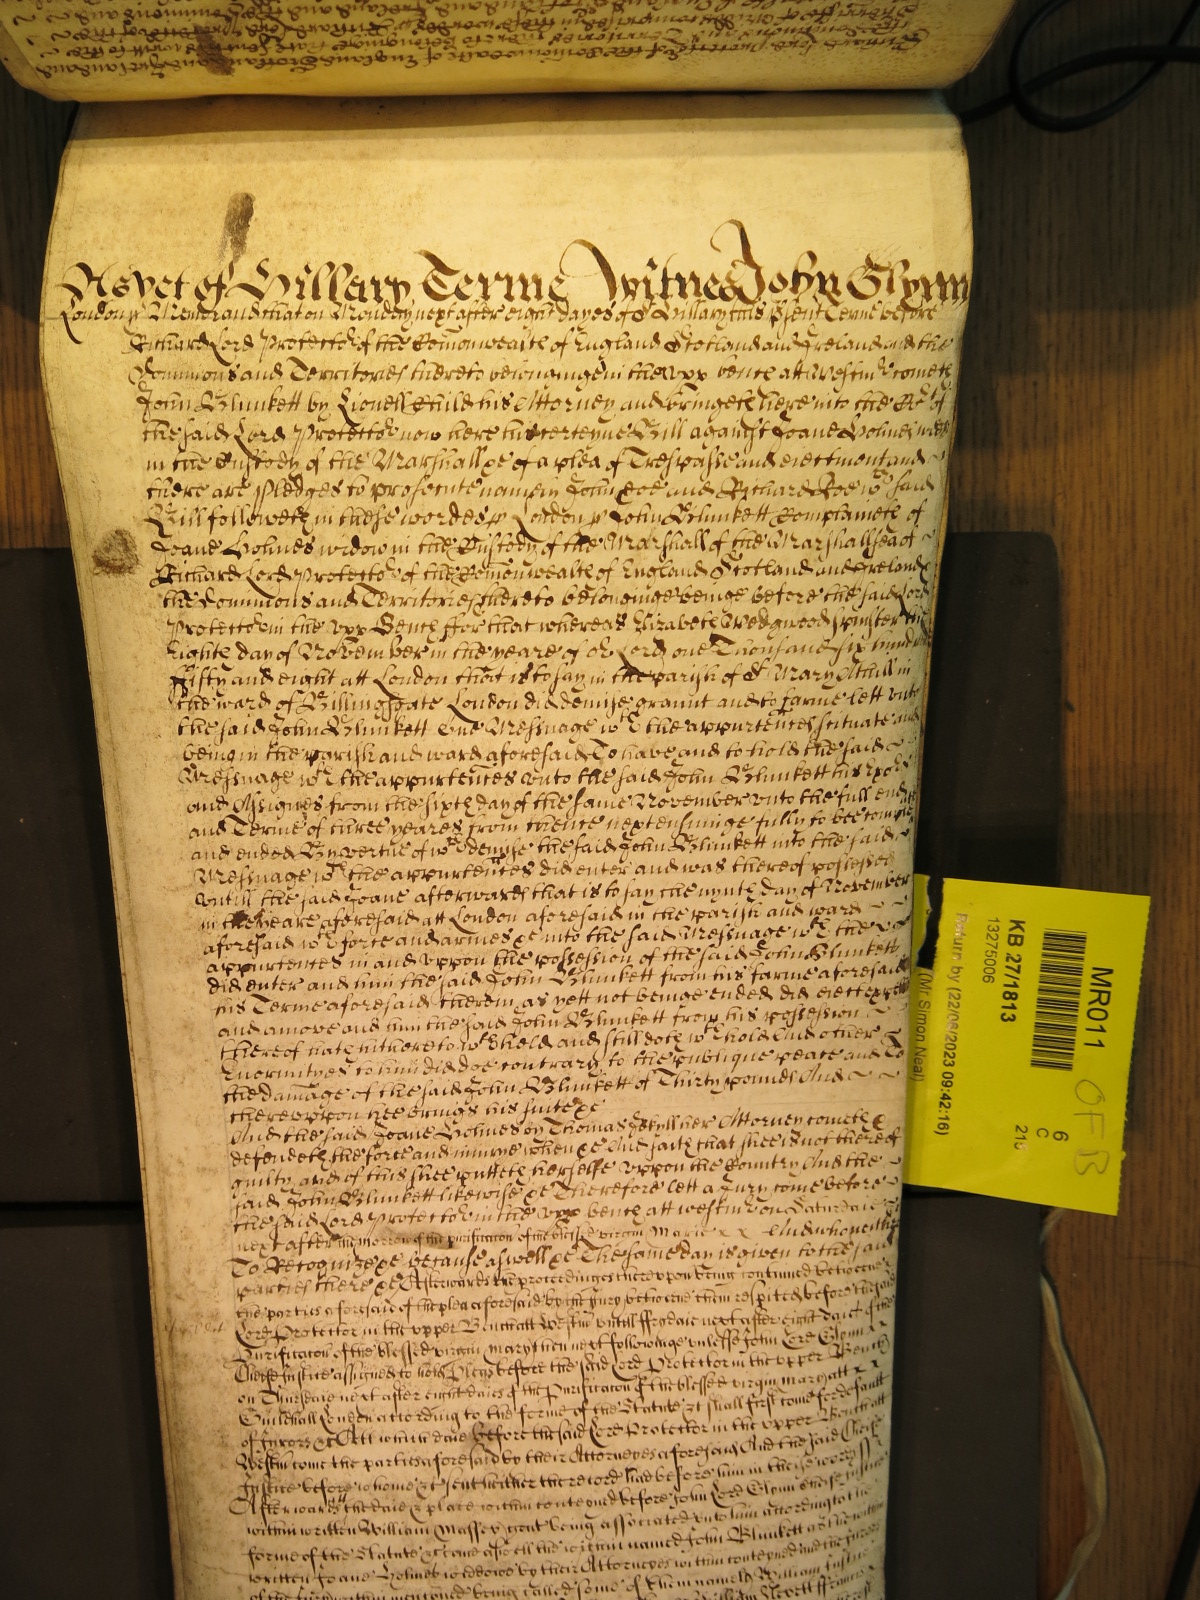 As yet of Hillary Terme Witnes John Glynn
London ss Memorand that on Monday next after eight dayes of St Hillary this p'sent Terme before
Richard Lord Protector of the Comonwealth of England Scotland and Ireland and the
Dominions and Territories thereto belonginge in the upp bench att Westmr cometh
John Blunkett by Lionell Child his Attorney and bringeth here into the Ct of
the said Lord Protector now here his certeyne Bill against Joane Holmes widd
in the Custody of the Marshall &c of a plea of Trespasse and eiectment and
there are Pledges to prosecute namely John Doe and Richard Roe wch said
Bill followeth in these wordes ss London ss John Blunkett Complaineth of
Joane Holmes widow in the Custody of the Marshall of the Marshallsea of
Richard Lord Protector of the Comonwealth of England Scotland and Ireland
the Dominions and Territories thereto belonginge beinge before the said Lord
Protector in the upp Bench ffor that whereas Elizabeth Wedgwood spinster the
Eighth day of November in the yeare of or Lord one Thousand six hundred
ffifty and eight att London that is to say in the parish of St Mary Athill in
the ward of Billingsgate London did demise graunt and to farme lett unto
the said John Blunkett One Messuage wth the appurtences scituate and
being in the parish and ward aforesaid To have and to hold the said
Messuage wth the appurtences unto the said John Blunkett his
and Assignes from the sixth day of the same November unto the full end
and Terme of three yeares from thence next ensuinge fully to bee
and ended By vertue of wch demise the said John Blunkett into the said
Messuage wth the appurtences did enter and was thereof possessed
untill the said Joane afterwards that is to say the nynth day of November
in the yeare aforesaid att London aforesaid in the parish and ward
aforesaid wth force and armes &c into the said Messuage wth the
appurtences in and uppon the possession of the said John Blunkett
did enter and him the said John Blunkett from his farme aforesaid
his Terme aforesaid therein as yett not beinge ended did eiect expell
and amove and him the said John Blunkett from his possession
thereof hath hitherto wthhold and still doth wthhold And other
Enormityes to him did doe contrary to the publique peace and To
the damage of the said John Blunkett of Thirty pounds And
thereuppon hee brings his suite &c
And the said Joane Holmes by Thomas Jekyll her Attorney cometh &
defendeth the force and iniurye when &c And saith that shee is not thereof
guilty and of this shee putteth herselfe uppon the Country And the
said John Blunkett likewise &c Therefore lett a Jury come before
the said Lord Protector in the upp bench att westmr on Saturdaie
next after the morrow of the purificacon of the blessed virgin Marie x x And who neither
To Recognize &c because aswell &c The same day is given to the said
parties there &c Afterwards the proceedinges thereupon being continued betweene
the parties aforesaid of the plea aforesaid by the Jury betweene them respited before the said
Lord Protector in the upper Bench att Westmr untill ffrydaie next after eight daies of the
Purificacon of the blessed virgin mary then next followinge unlesse John Lord Glynn
Cheife Justice assigned to hold Pleas before the said Lord Protector in the upper Bench
on Thursdaie next after eight daies of the Purificacon of the blessed virgin mary att x x
Guildhall London according to the forme of the Statute &c shall first come for default
of Jurors &c Att which daie before the said Lord Protector in the upper Bench att
Westmr come the parties aforesaid by their Attorneyes aforesaid And the said Cheife
Justice before whome &c sent hether the record had before him in these words
Afterwards the daie & place within conteyned before John Lord Glynn Cheife Justice
within written William Massey gent being associated unto him according to the
forme of the Statute &c come aswell the within named John Blunkett as the within
written Joane Holmes widdowe by their Attorneyes within conteyned and the Jurors
of the Jury within mentioned being called some of them namely William
William Nevett
MR011
KB 27/1813
13275006
6
C
OFB
Return by (22/08/2023 09:42:16)
(Mr Simon Neal)